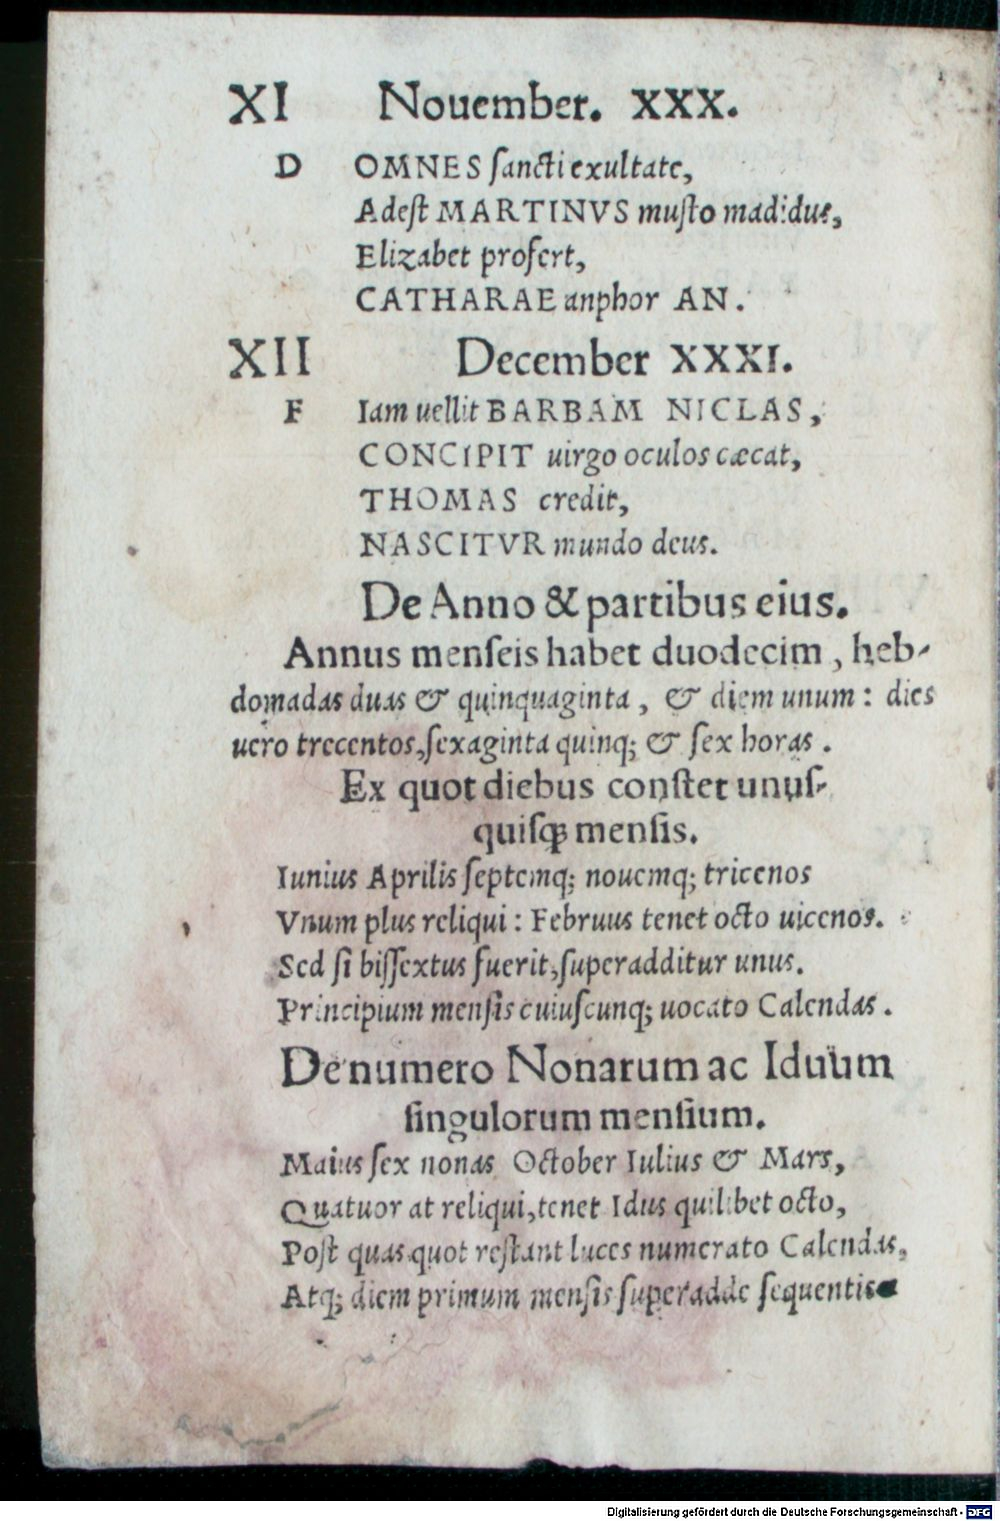 XI Nouember. XXX.
D OMNES ſancti exultate,
Adeſt MARTINVS muſto madidus,
Elizabet profert,
CATHARAE anphor AN.
XII December XXXI.
F Iam uellit BARBAM NICLAS,
CONCIPIT uirgo oculos cæcat,
THOMAS credit,
NASCITVR mundo deus.
De Anno & partibus eius.
Annus menſeis habet duodecim, heb-
domadas duas & quinquaginta, & diem unum: dies
uero trecentos, ſexaginta quinq; & ſex horas.
Ex quot diebus conſtet unuſ-
quiſqꝫ menſis.
Iunius Aprilis ſeptemq; nouemq; tricenos
Vnum plus reliqui: Februus tenet octo uicenos.
Sed ſi biſſextus fuerit, ſuperadditur unus.
Principium menſis cuiuſcunq; uocato Calendas.
De numero Nonarum ac Iduum
ſingulorum menſium.
Maius ſex nonas October Iulius & Mars,
Quatuor at reliqui, tenet Idus quilibet octo,
Poſt quas quot reſtant luces numerato Calendas,
Atq; diem primum menſis ſuperadde ſequentis
Digitalisierung gefördert durch die Deutsche Forschungsgemeinschaft - DFG